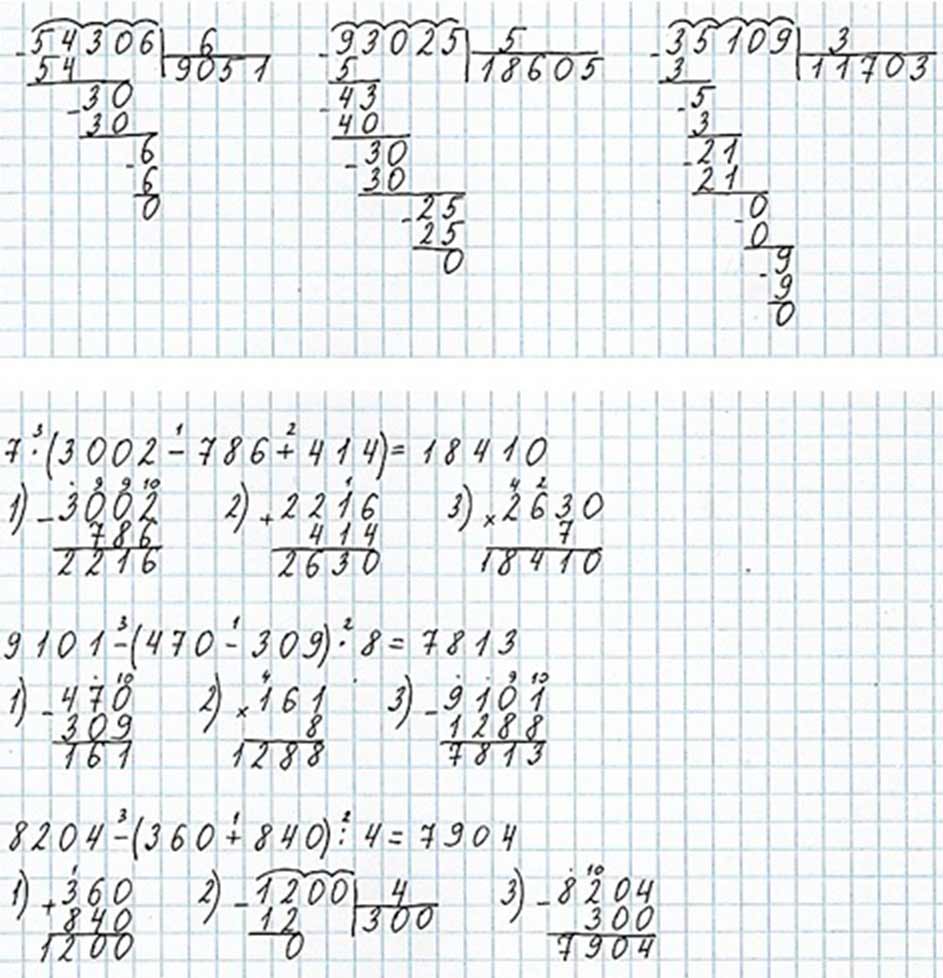 54306 | 6 93025 | 5 35109 | 3
54 9051 5 18605 3 11703
-30 -43 -5
30 40 3
-6 -30 -21
6 30 21
0 -25 -0
25 0
0 -9
9
0
7 · (3002 - 786 + 414) = 18410
1) -3002 2) +2216 3) ×2630
786 414 7
2216 2630 18410
9101 - (470 - 309) · 8 = 7813
1) -470 2) ×161 3) -9101
309 8 1288
161 1288 7813
8204 - (360 + 840) : 4 = 7904
1) +360 2) -1200 | 4 3) -8204
840 12 300 300
1200 0 7904